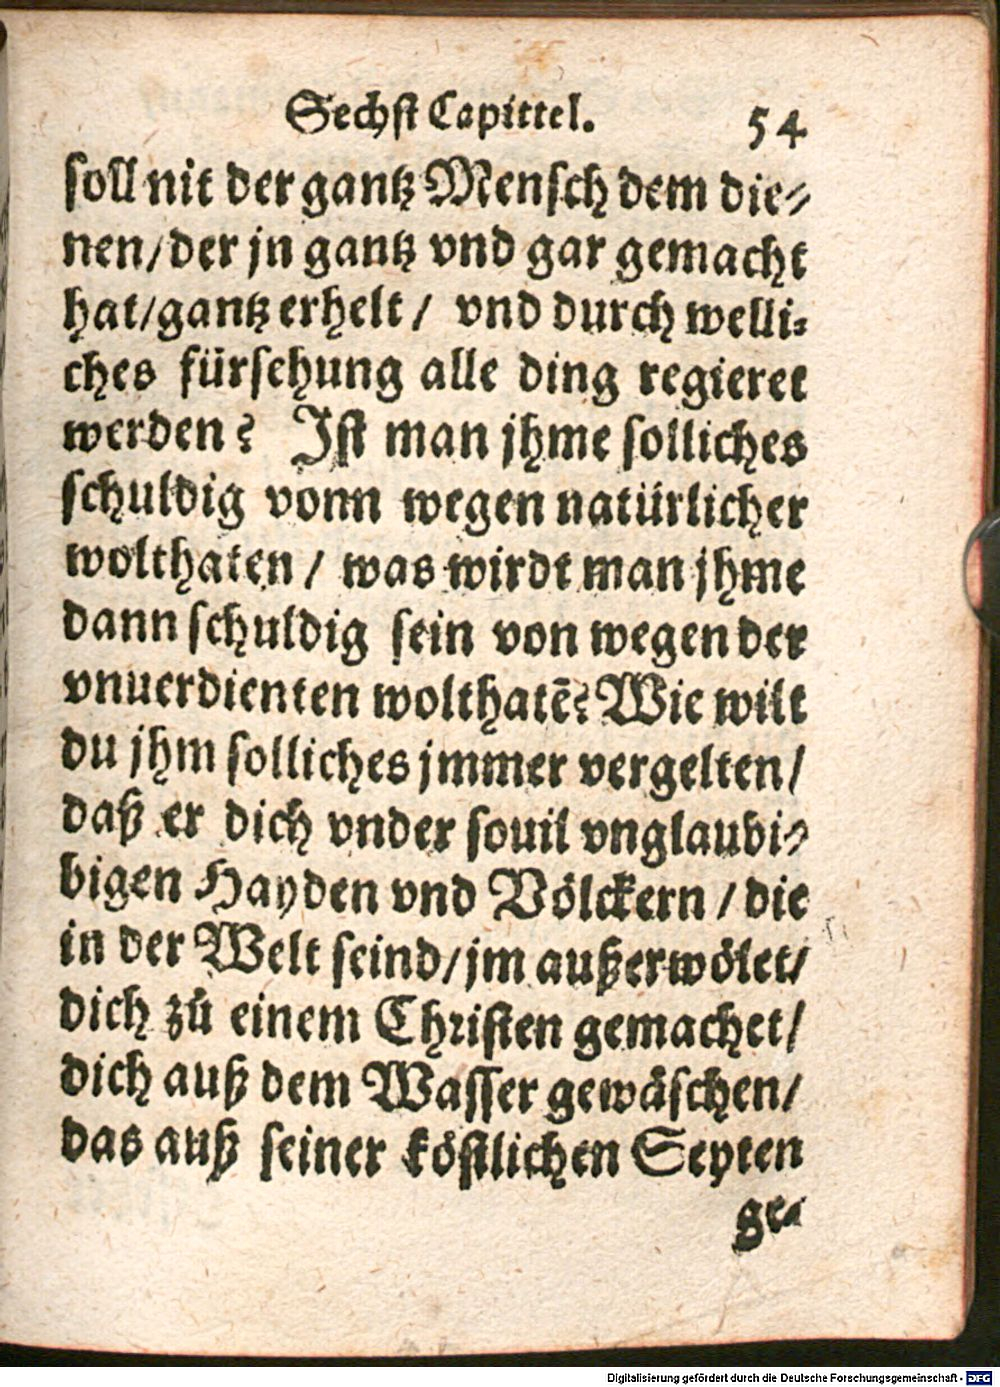 Sechst Capittel. 54
soll nit der gantz Mensch dem die⸗
nen/der jn gantz vnd gar gemacht
hat/gantz erhelt/ vnd durch welli⸗
ches fürsehung alle ding regieret
werden? Ist man jhme solliches
schuldig vonn wegen natürlicher
wolthaten/ was wirdt man jhme
dann schuldig sein von wegen der
vnuerdienten wolthatē? Wie wilt
du jhm solliches jmmer vergelten/
daß er dich vnder souil vnglaubi⸗
bigen Hayden vnd Völckern/die
in der Welt seind/jm außerwölet/
dich zů einem Christen gemachet/
dich auß dem Wasser gewäschen/
das auß seiner köstlichen Seyten
ge⸗
Digitalisierung gefördert durch die Deutsche Forschungsgemeinschaft - DFG